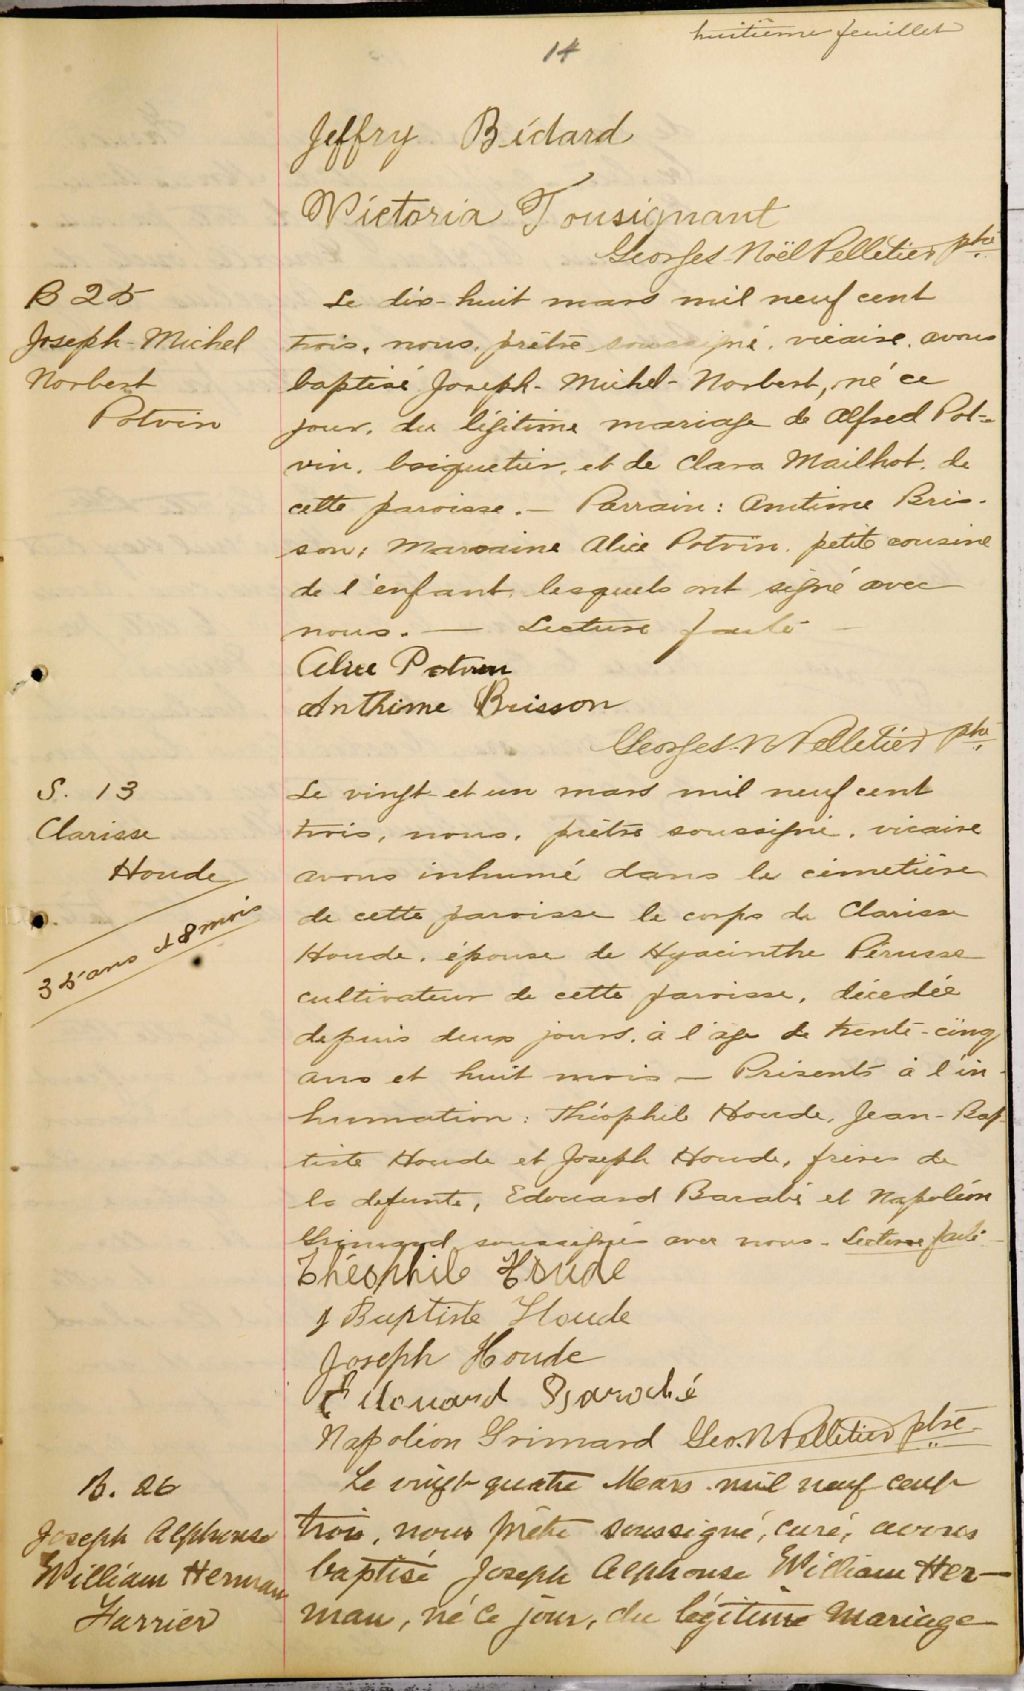 huitième feuillet
14
Jeffry Bédard
Victoria Tousignant
Georges-Noël Pelletier ptre
B 25
Joseph-Michel
Norbert
Potvin
Le dix-huit mars mil neuf cent
trois, nous, prêtre soussigné, vicaire, avons
baptisé Joseph-Michel-Norbert, né ce
jour, du légitime mariage de Alfred Pot-
vin, briquetier, et de Clara Mailhot, de
cette paroisse. — Parrain: Antime Bris-
son; Marraine Alice Potvin, petite cousine
de l'enfant, lesquels ont signé avec
nous. — Lecture faite —
Alice Potvin
Anthime Brisson
Georges-N Pelletier ptre
S. 13
Clarisse
Houde
35 ans et 8 mois
Le vingt et un mars mil neuf cent
trois, nous, prêtre soussigné, vicaire
avons inhumé dans le cimetière
de cette paroisse le corps de Clarisse
Houde, épouse de Hyacinthe Pérusse
cultivateur de cette paroisse, décédée
depuis deux jours, à l'âge de trente-cinq
ans et huit mois — Présents à l'in-
humation: Théophile Houde, Jean-Bap-
tiste Houde et Joseph Houde, frères de
la défunte, Edouard Barabé et Napoléon
Grimard soussignés avec nous. Lecture faite —
Théophile Houde
J Baptiste Houde
Joseph Houde
Edouard Barabé
Napoléon Grimard Geo. N Pelletier ptre
B. 26
Joseph Alphonse
William Herman
Farrier
Le vingt quatre Mars mil neuf cent
trois, nous prêtre soussigné, curé, avons
baptisé Joseph Alphonse William Her-
man, né ce jour, du légitime mariage